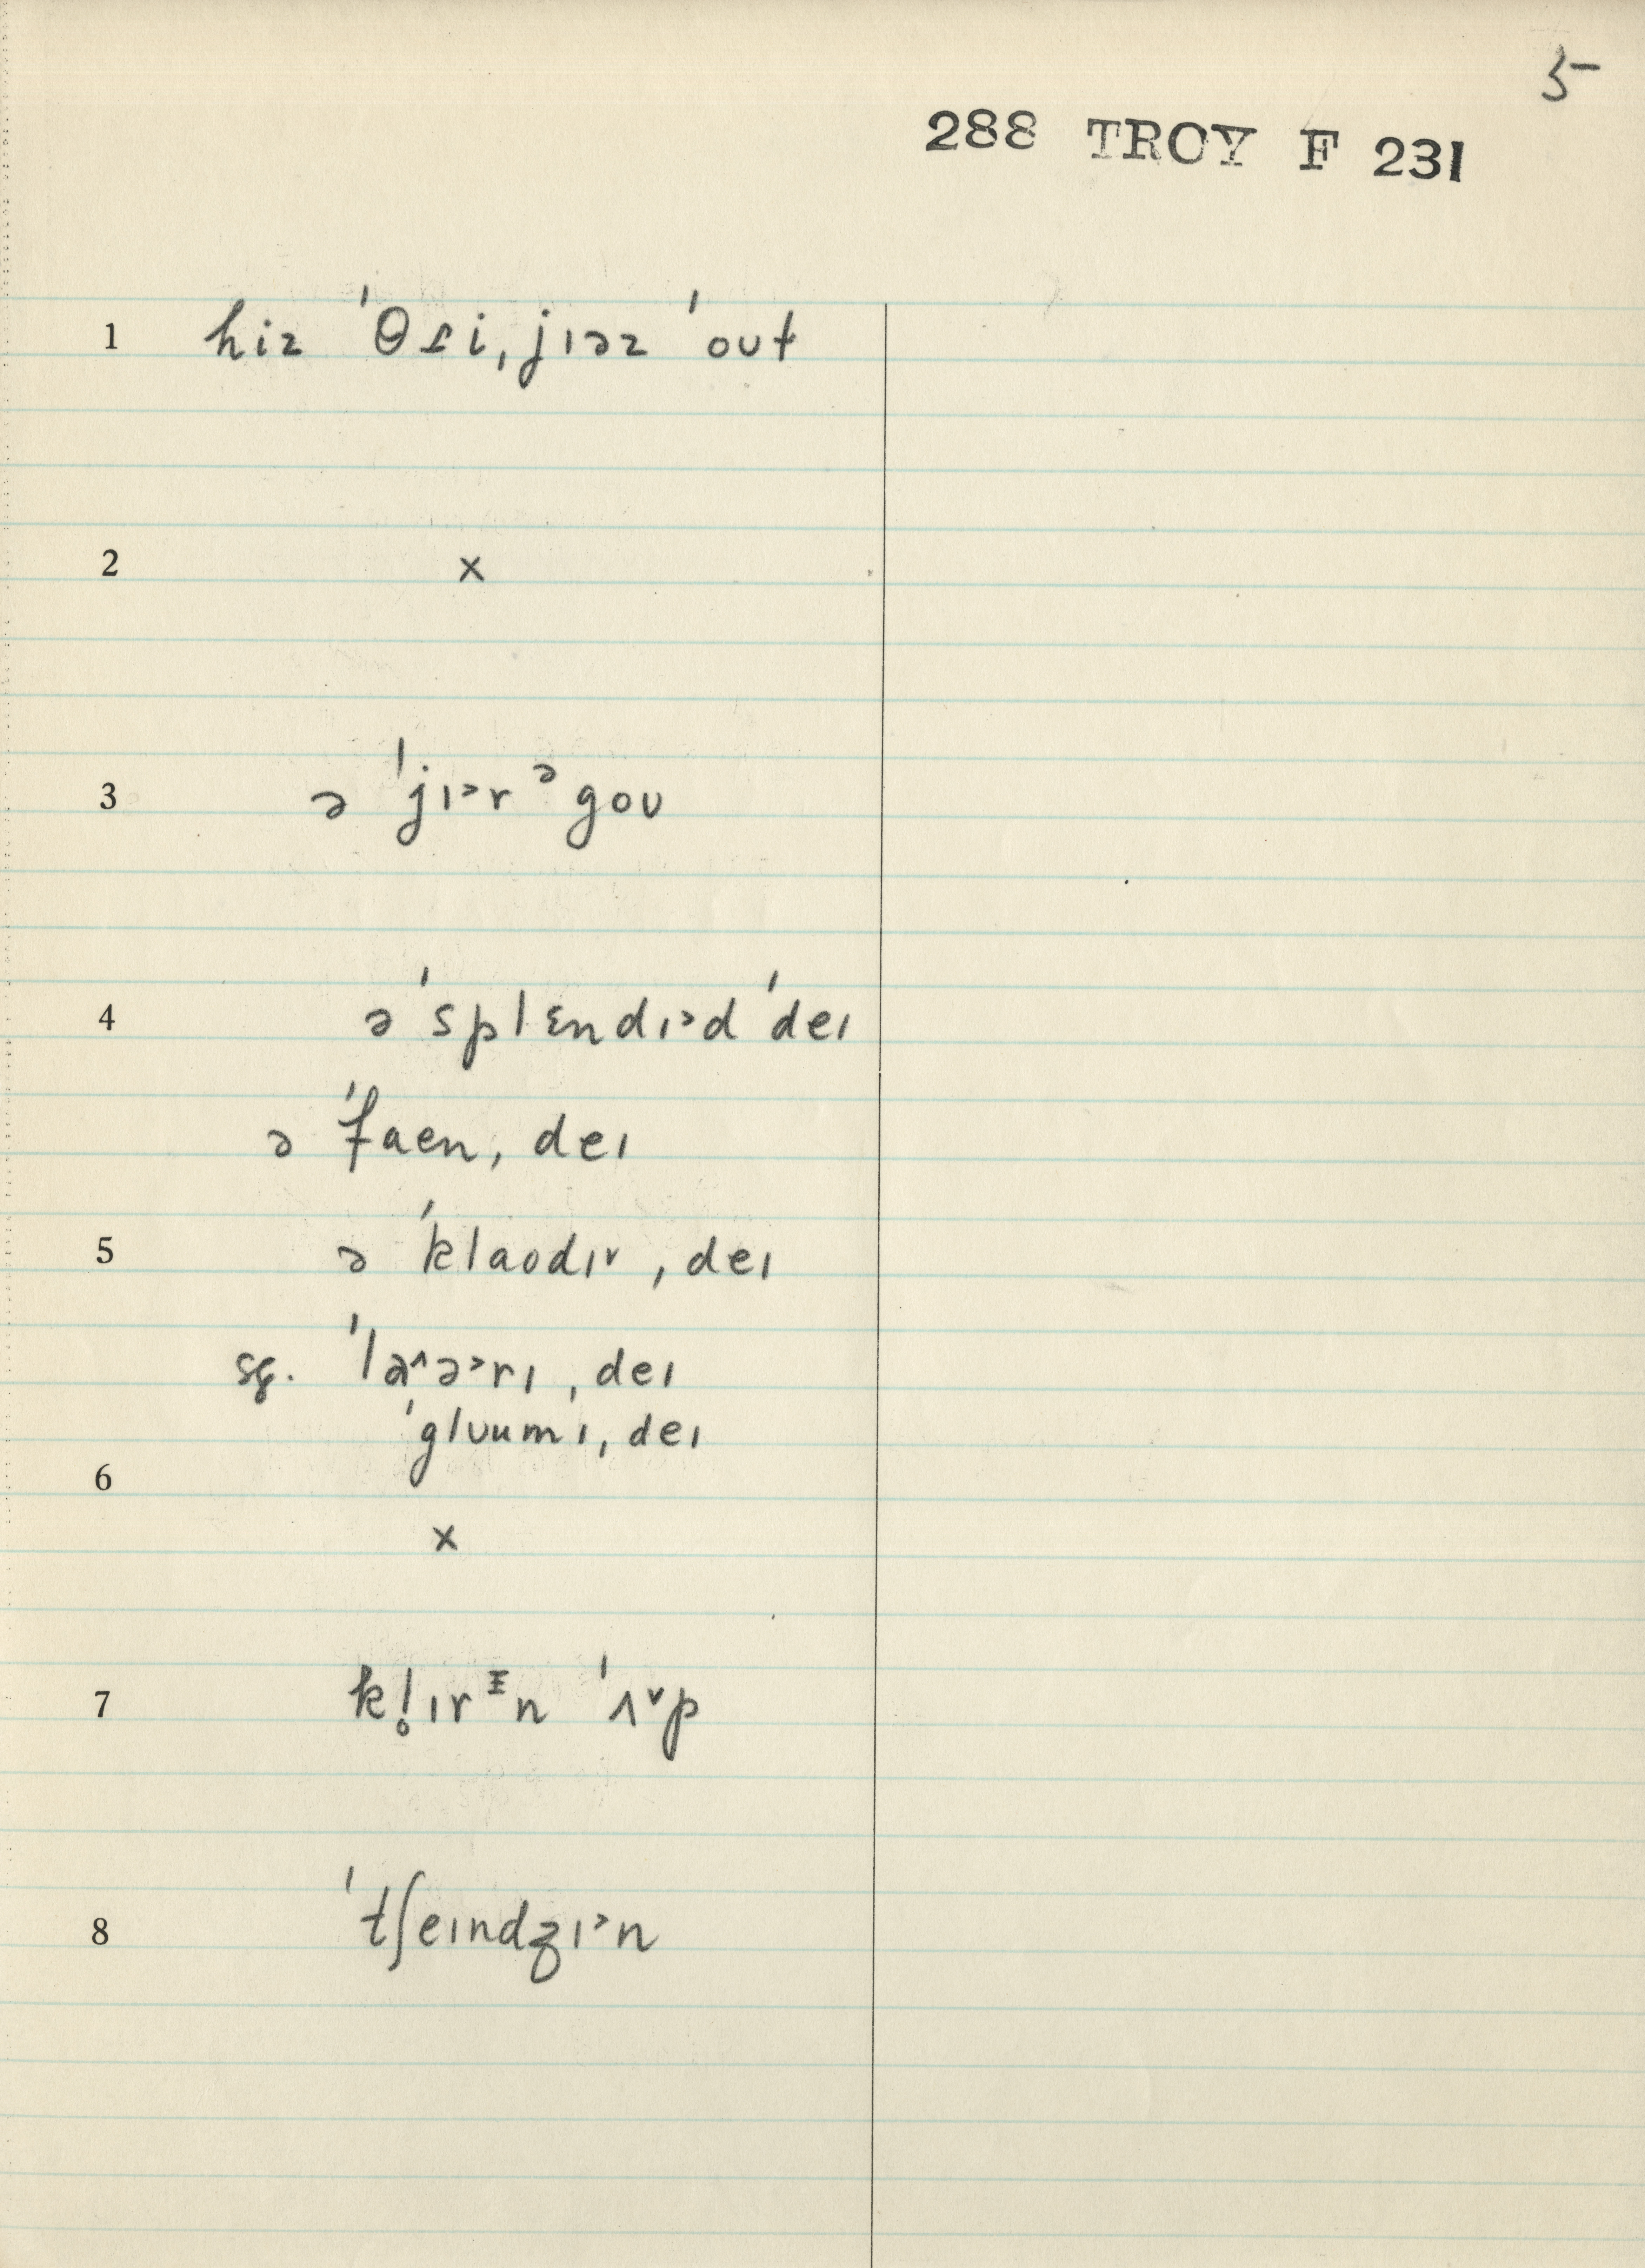 5
288 TROY F 231
1 hiz ˈθɾi ˌjɪəz ˈoʊt
2 x
3 ə ˈjɪ˃r ᵊ goʊ
4 ə ˈsplɛndɪ˃d ˈdeɪ
ə ˈfaen ˌdeɪ
5 ə ˈklaodɪ˅ ˌdeɪ
sg. ˈlə˄ə˃rɪ ˌdeɪ
ˈglʊumɪ ˌdeɪ
6
x
7 kl̥ɪrᵻn ˈʌ˅p
8 ˈtʃeɪndʒɪ˃n